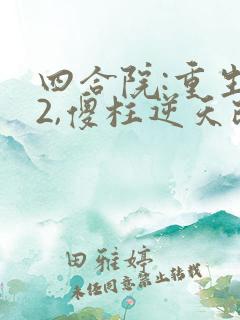 四合院:重生
2,傻柱逆天改
田雅婷
未经同意禁止转载